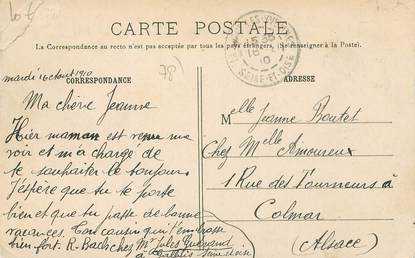 CARTE POSTALE
La Correspondance au recto n'est pas acceptée par tous les pays étrangers. (Se renseigner à la Poste).
CORRESPONDANCE
ADRESSE
mardi 16 aout 1910
78
SEINE-ET-OISE
Ma chère Jeanne
Hier maman est venu me
voir et m'a chargé de
te souhaiter le bonjour.
J'éspère que tu te porte
bien et que tu passe de bonne
vacances. Ton cousin qui t'embrasse
bien fort. R. Bach chez Mr Jules
à
Melle Jeanne Boutet
Chez Melle Amoureux
1 Rue des Tourneurs à
Colmar
(Alsace)